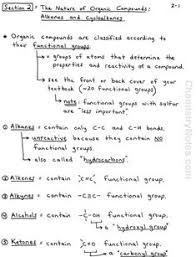 Section 2 = The Nature of Organic Compounds: 2-1
Alkanes and Cycloalkanes
* Organic compounds are classified according
to their functional groups.
= groups of atoms that determine the
properties and reactivity of a compound.
see the front or back cover of your
textbook (~20 functional groups)
note: functional groups with sulfur
are "less important"
① Alkanes = contain only C-C and C-H bonds.
unreactive because they contain NO
functional groups.
also called "hydrocarbons".
② Alkenes = contain C=C functional group.
③ Alkynes = contain -C≡C- functional group.
④ Alcohols = contain -C-OH functional group.
a hydroxyl group
⑤ Ketones = contain C-C-C functional group.
O
a carbonyl group
ChemistryNotes.com